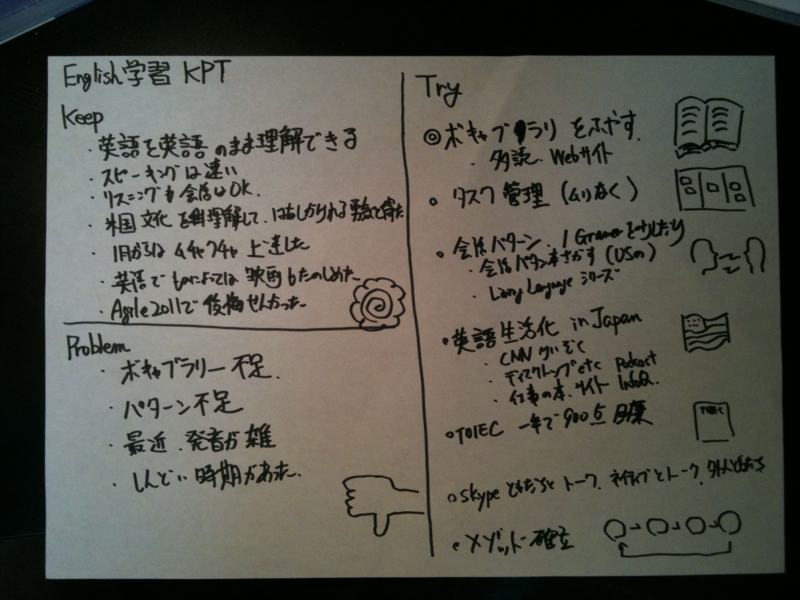 English学習 KPT
Keep
・英語を英語のまま理解できる
・スピーキングは速い
・リスニングも会話はOK.
・米国文化を理解して、
・1月からはムチャクチャ上達した
・英語で 映画もたのしめた
・Agile2011で後悔せんかった
Problem
・ボキャブラリー不足.
・パターン不足
・最近、発音が雑
・しんどい時期があった.
Try
◎ボキャブラリをふやす.
・多読、Webサイト
○タスク管理(ムリなく)
○会話パターン、
・会話パターン本さがす(USの)
・Language シリーズ
○英語生活化 in Japan
・CNN けいぞく
・デスクトップ etc Podcast
・仕事の本、サイト InfoQ.
○TOIEC 一年で900点目標
TOIEC
○skype ともだちとトーク、ネイティブとトーク、
○メソッド確立